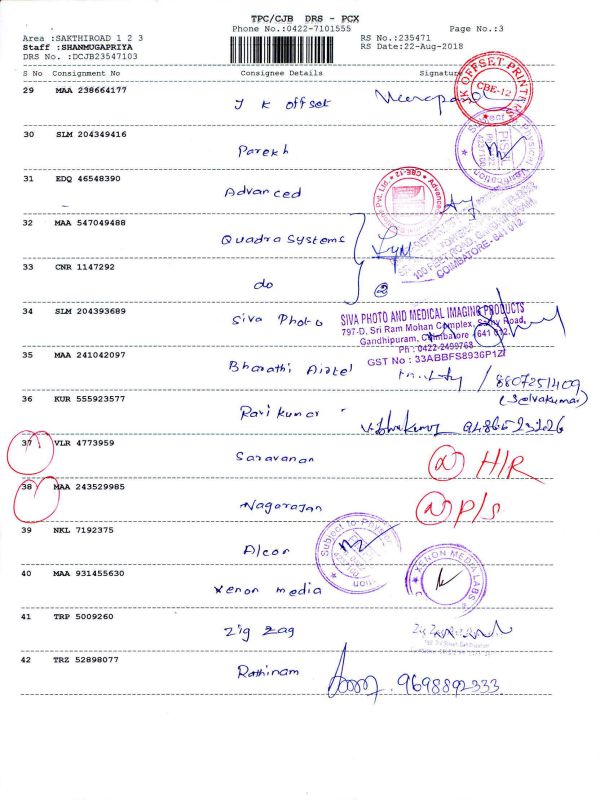 TPC/CJB DRS - PCX
Phone No.:0422-7101555 Page No.:3
Area :SAKTHIROAD 1 2 3 RS No.:235471
Staff :SHANMUGAPRIYA RS Date:22-Aug-2018
DRS No. :DCJB23547103
S No Consignment No Consignee Details Signature
29 MAA 238664177 J K offset
JK OFFSET PRINTERS CBE-12
30 SLM 204349416 Parekh
31 EDQ 46548390 Advanced
Pvt. Ltd. * CBE-12 * Advanced
32 MAA 547049488 Quadra Systems
100 FEET ROAD,
COIMBATORE - 641 012
33 CNR 1147292 do 2
34 SLM 204393689 Siva Photo
SIVA PHOTO AND MEDICAL IMAGING PRODUCTS
797-D, Sri Ram Mohan Complex, Road,
Gandhipuram, Coimbatore - 641 012.
Ph : 0422-2499768
GST No : 33ABBFS8936P1ZI
35 MAA 241042097 Bharathi Airtel / 8807251409
(Selvakumar)
36 KUR 555923577 Ravi kumar
37 VLR 4773959 Saravanan H/R
38 MAA 243529985 Nagarajan P/S
39 NKL 7192375 Alcor
Subject to Physical
40 MAA 931455630 Xenon media
XENON MEDIA LABS
41 TRP 5009260 Zig Zag
42 TRZ 52898077 Rathinam 9698892333